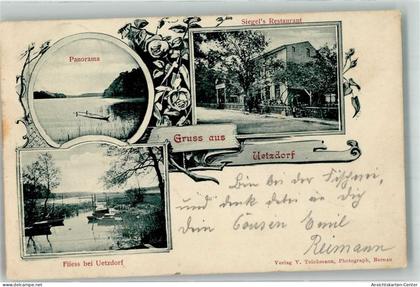 Siegel's Restaurant
Panorama
Gruss aus
Uetzdorf
Bin bei der Fischerei,
und denk dabei an dich
dein Cousin Emil
Reimann
Fliess bei Uetzdorf
Verlag V. Teichmann, Photograph, Bernau
www.ansichtskarten-center.de
Ansichtskarten-Center